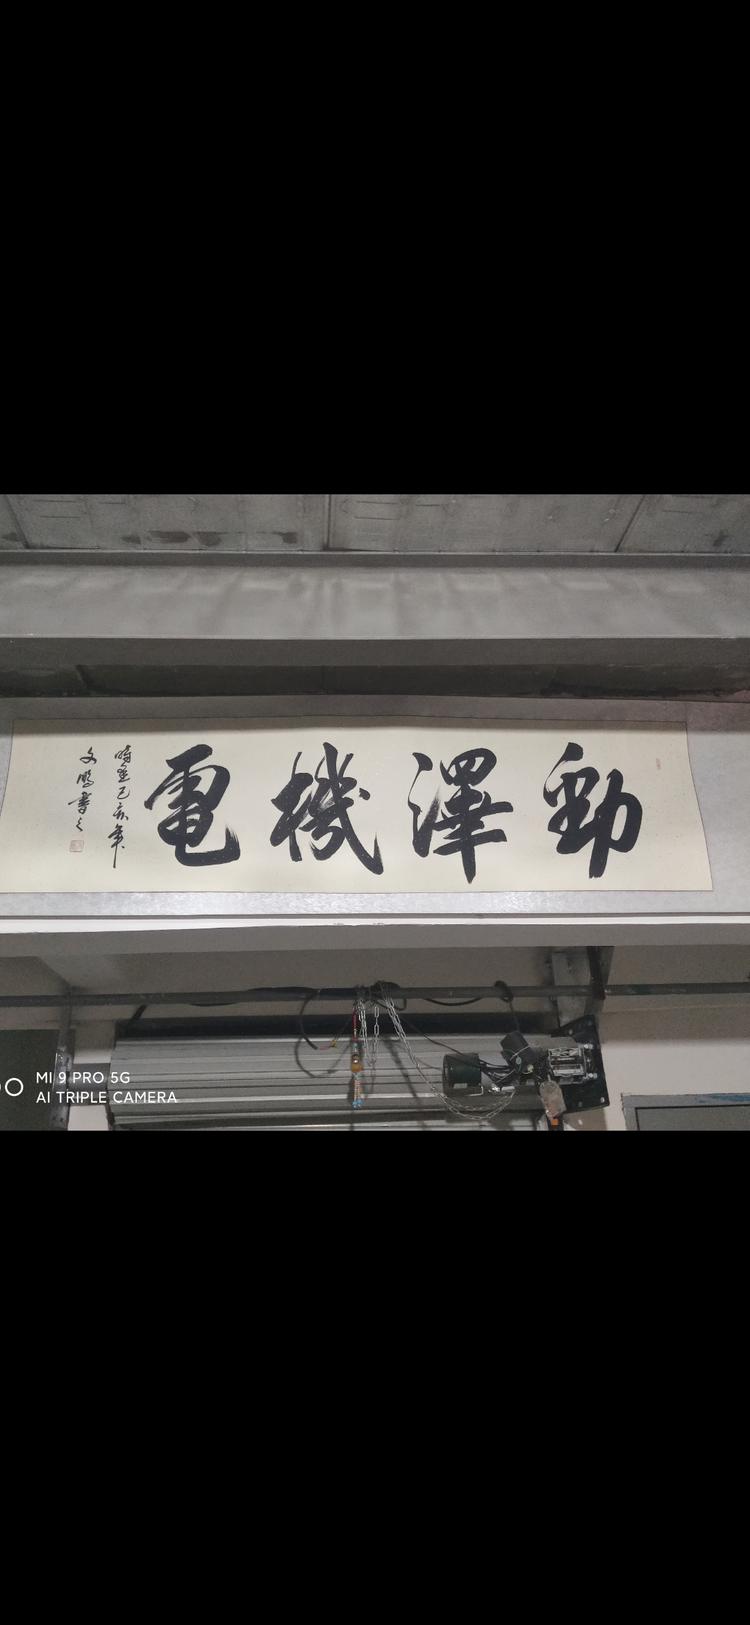 勁澤機電
時己亥年
文鵬書之
MI 9 PRO 5G
AI TRIPLE CAMERA